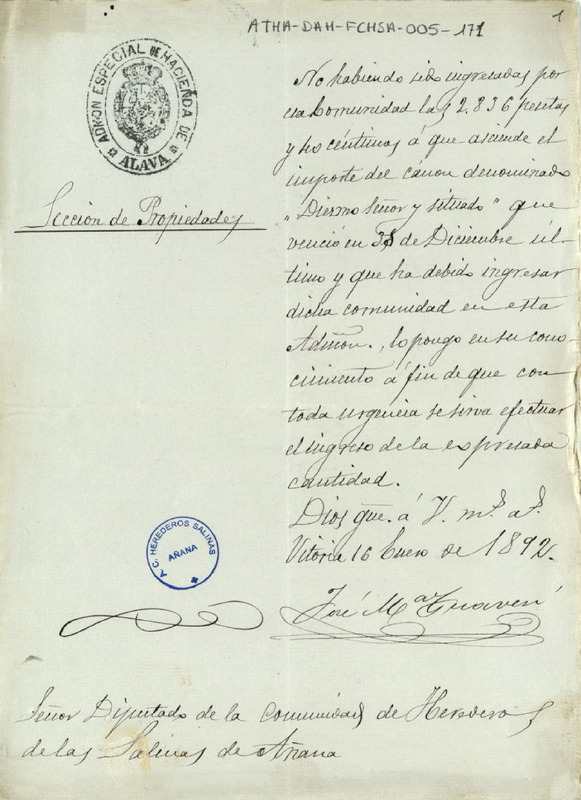 ATHA-DAH-FCHSA-005-171
1
ADMON ESPECIAL DE HACIENDA DE
ALAVA
Sección de Propiedades
No habiendo sido ingresadas por
esa Comunidad las 2.836 pesetas
y céntimos á que asciende el
importe del canon denominado
"Diezmo Señor y situado" que
venció en 31 de Diciembre úl-
timo y que ha debido ingresar
dicha comunidad en esta
Admón., lo pongo en su cono-
cimiento á fin de que con
toda urgencia se sirva efectuar
el ingreso de la expresada
cantidad.
Dios gue. á V. ms. as.
Vitoria 16 Enero de 1892.
José Ma
A.C. HEREDEROS SALINAS
AÑANA
Señor Diputado de la Comunidad de Herederos
de las Salinas de Añana